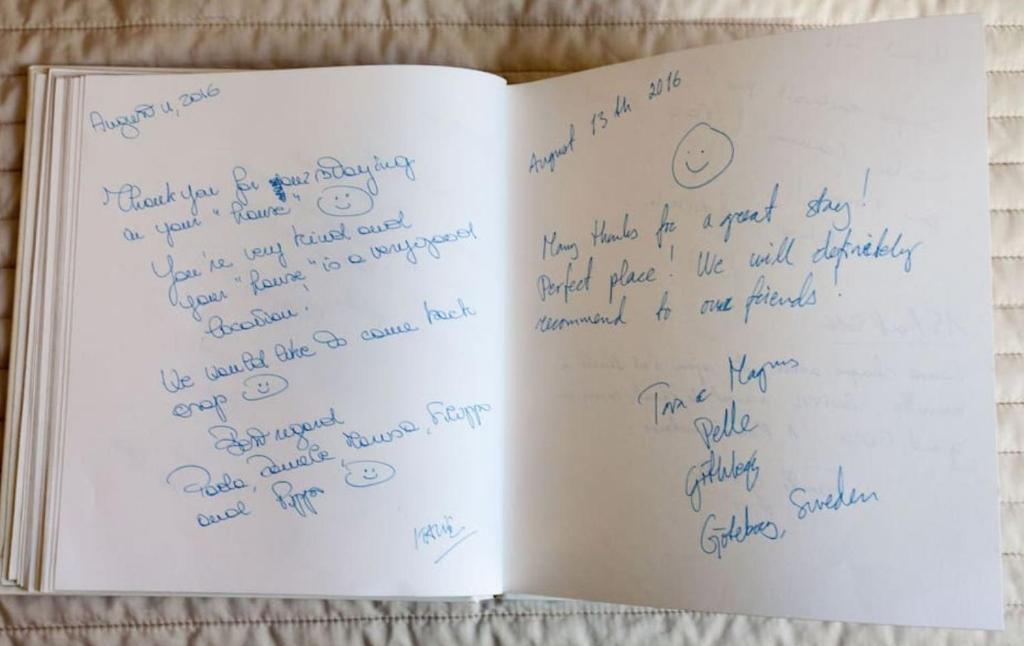 August 11, 2016
Thank you for your staying
in your "house"
You're very kind and
your "house" is a very good
location.
We would like to come back
Best regard
Paola, Daniele, Filippo
and Pippo
August 13th 2016
Many thanks for a great stay!
Perfect place! We will definitely
recommend to our friends!
Magnus
Pelle
Göteborg, Sweden